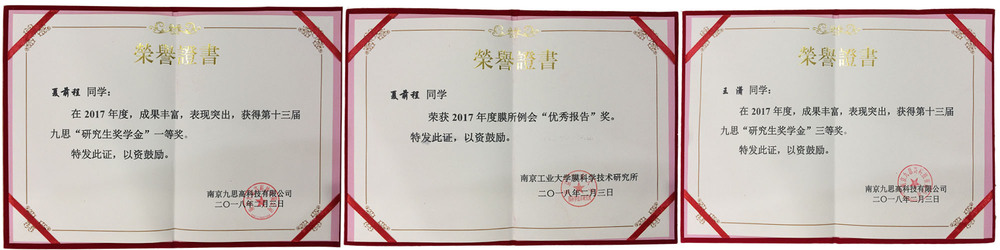 榮譽證書
夏前程 同学：
在 2017 年度，成果丰富，表现突出，获得第十三届
九思“研究生奖学金”一等奖。
特发此证，以资鼓励。
南京九思高科技有限公司
二〇一八年二月三日
榮譽證書
夏前程 同学
荣获 2017 年度膜所例会“优秀报告”奖。
特发此证，以资鼓励。
南京工业大学膜科学技术研究所
二〇一八年二月三日
榮譽證書
同学：
在 2017 年度，成果丰富，表现突出，获得第十三届
九思“研究生奖学金”三等奖。
特发此证，以资鼓励。
南京九思高科技有限公司
二〇一八年二月三日